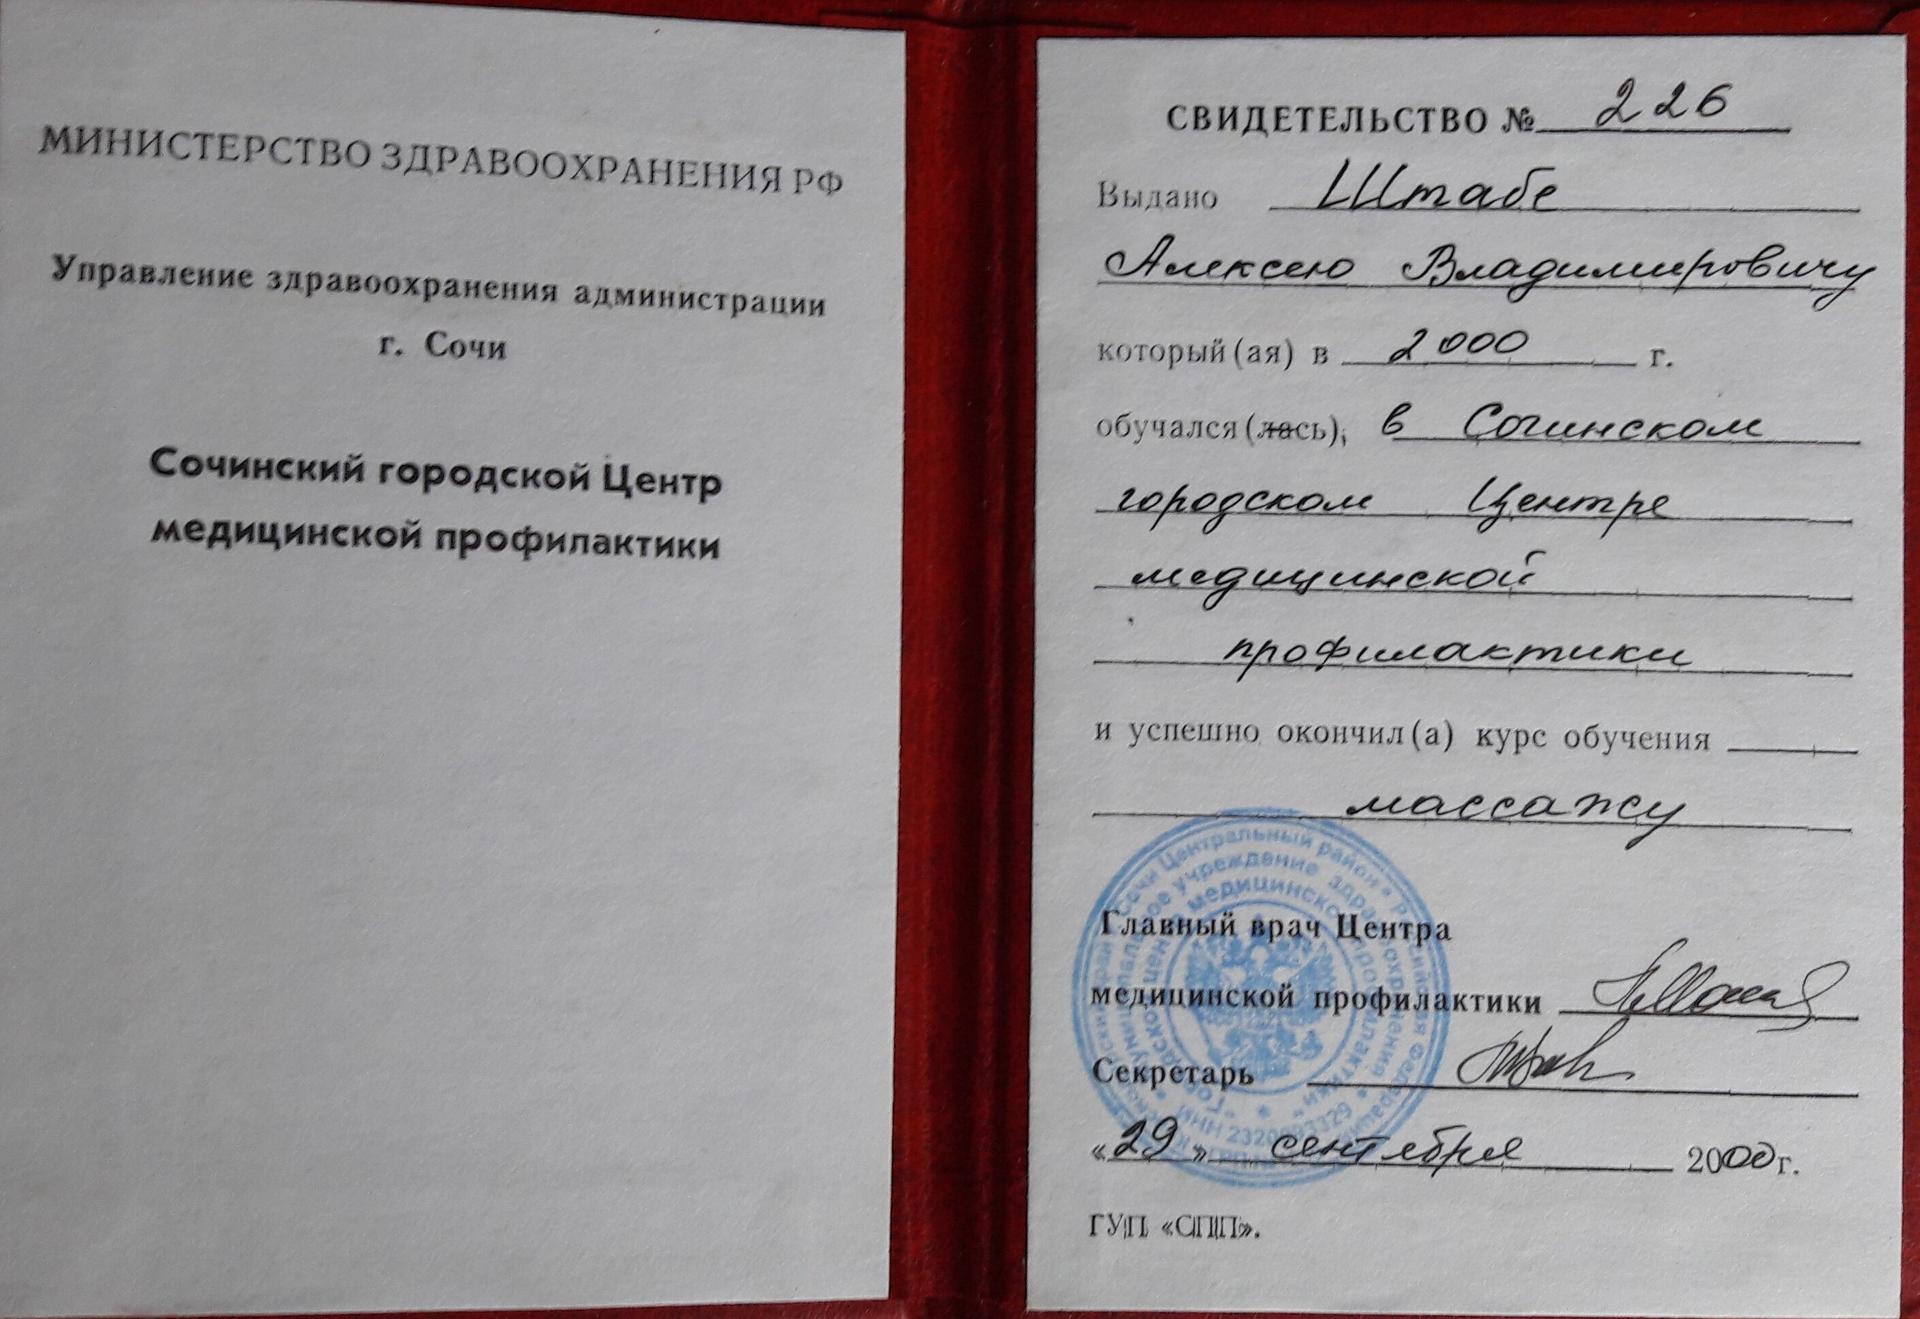 МИНИСТЕРСТВО ЗДРАВООХРАНЕНИЯ РФ
Управление здравоохранения администрации
г. Сочи
Сочинский городской Центр
медицинской профилактики
СВИДЕТЕЛЬСТВО № 226
Выдано Штабе
Алексею Владимировичу
который(ая) в 2000 г.
обучался(лась), в Сочинском
городском Центре
медицинской
профилактики
и успешно окончил(а) курс обучения
массажу
Главный врач Центра
медицинской профилактики
Секретарь
«29» сентября 2000г.
ГУП «СПП».
Сочи Центральный район * Российская
учреждение здравоохранения
медицинской профилактики"
ИНН 2320093329